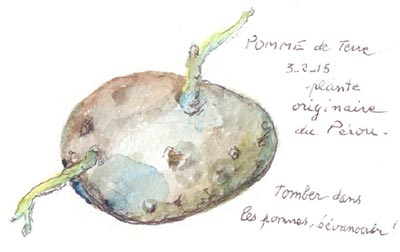 POMME de Terre
3-2-15
plante
originaire
du Pérou.
Tomber dans
les pommes, s'évanouir!